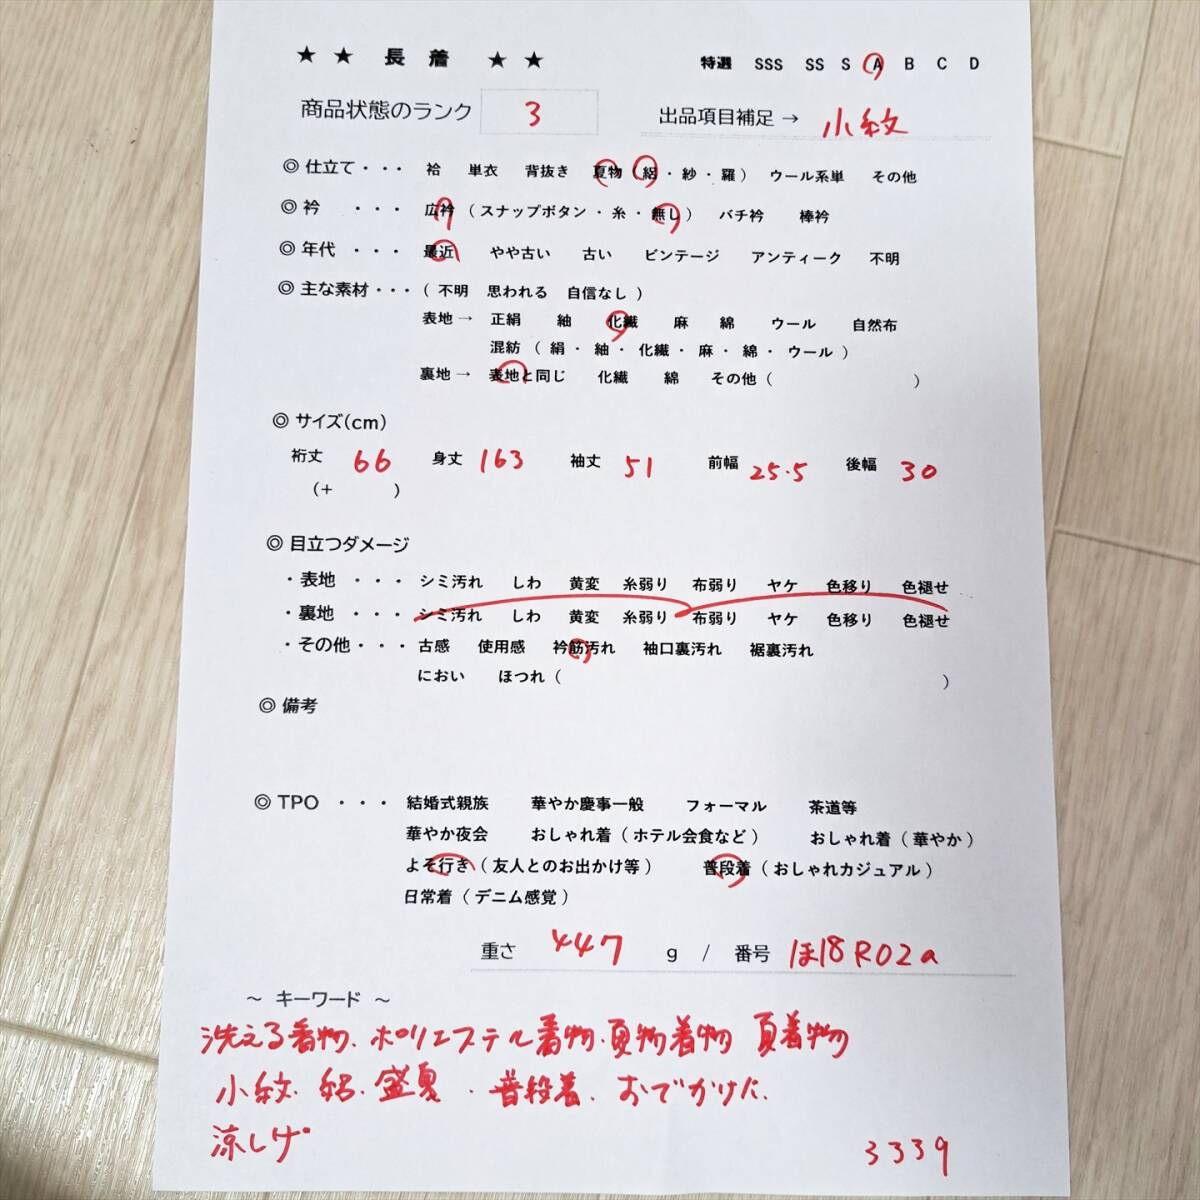 ★ ★ 長 着 ★ ★ 特選 SSS SS S A B C D
商品状態のランク 3 出品項目補足→ 小紋
◎ 仕立て・・・ 袷 単衣 背抜き 夏物 ( 絽 ・ 紗 ・ 羅 ) ウール系単 その他
◎ 衿 ・・・ 広衿 ( スナップボタン ・ 糸 ・ 無し ) バチ衿 棒衿
◎ 年代 ・・・ 最近 やや古い 古い ビンテージ アンティーク 不明
◎ 主な素材・・・ ( 不明 思われる 自信なし )
表地→ 正絹 紬 化繊 麻 綿 ウール 自然布
混紡 ( 絹 ・ 紬 ・ 化繊 ・ 麻 ・ 綿 ・ ウール )
裏地→ 表地と同じ 化繊 綿 その他 ( )
◎ サイズ(cm)
裄丈 66 身丈 163 袖丈 51 前幅 25.5 後幅 30
(+ )
◎ 目立つダメージ
・表地 ・・・ シミ汚れ しわ 黄変 糸弱り 布弱り ヤケ 色移り 色褪せ
・裏地 ・・・ シミ汚れ しわ 黄変 糸弱り 布弱り ヤケ 色移り 色褪せ
・その他・・・ 古感 使用感 衿筋汚れ 袖口裏汚れ 裾裏汚れ
におい ほつれ ( )
◎ 備考
◎ TPO ・・・ 結婚式親族 華やか慶事一般 フォーマル 茶道等
華やか夜会 おしゃれ着 ( ホテル会食など ) おしゃれ着 ( 華やか )
よそ行き ( 友人とのお出かけ等 ) 普段着 ( おしゃれカジュアル )
日常着 ( デニム感覚 )
重さ 447 g / 番号 ほ18R02a
～ キーワード ～
洗える着物、ポリエステル着物、夏物着物 夏着物
小紋、絽、盛夏、普段着、おでかけに、
涼しげ
3339